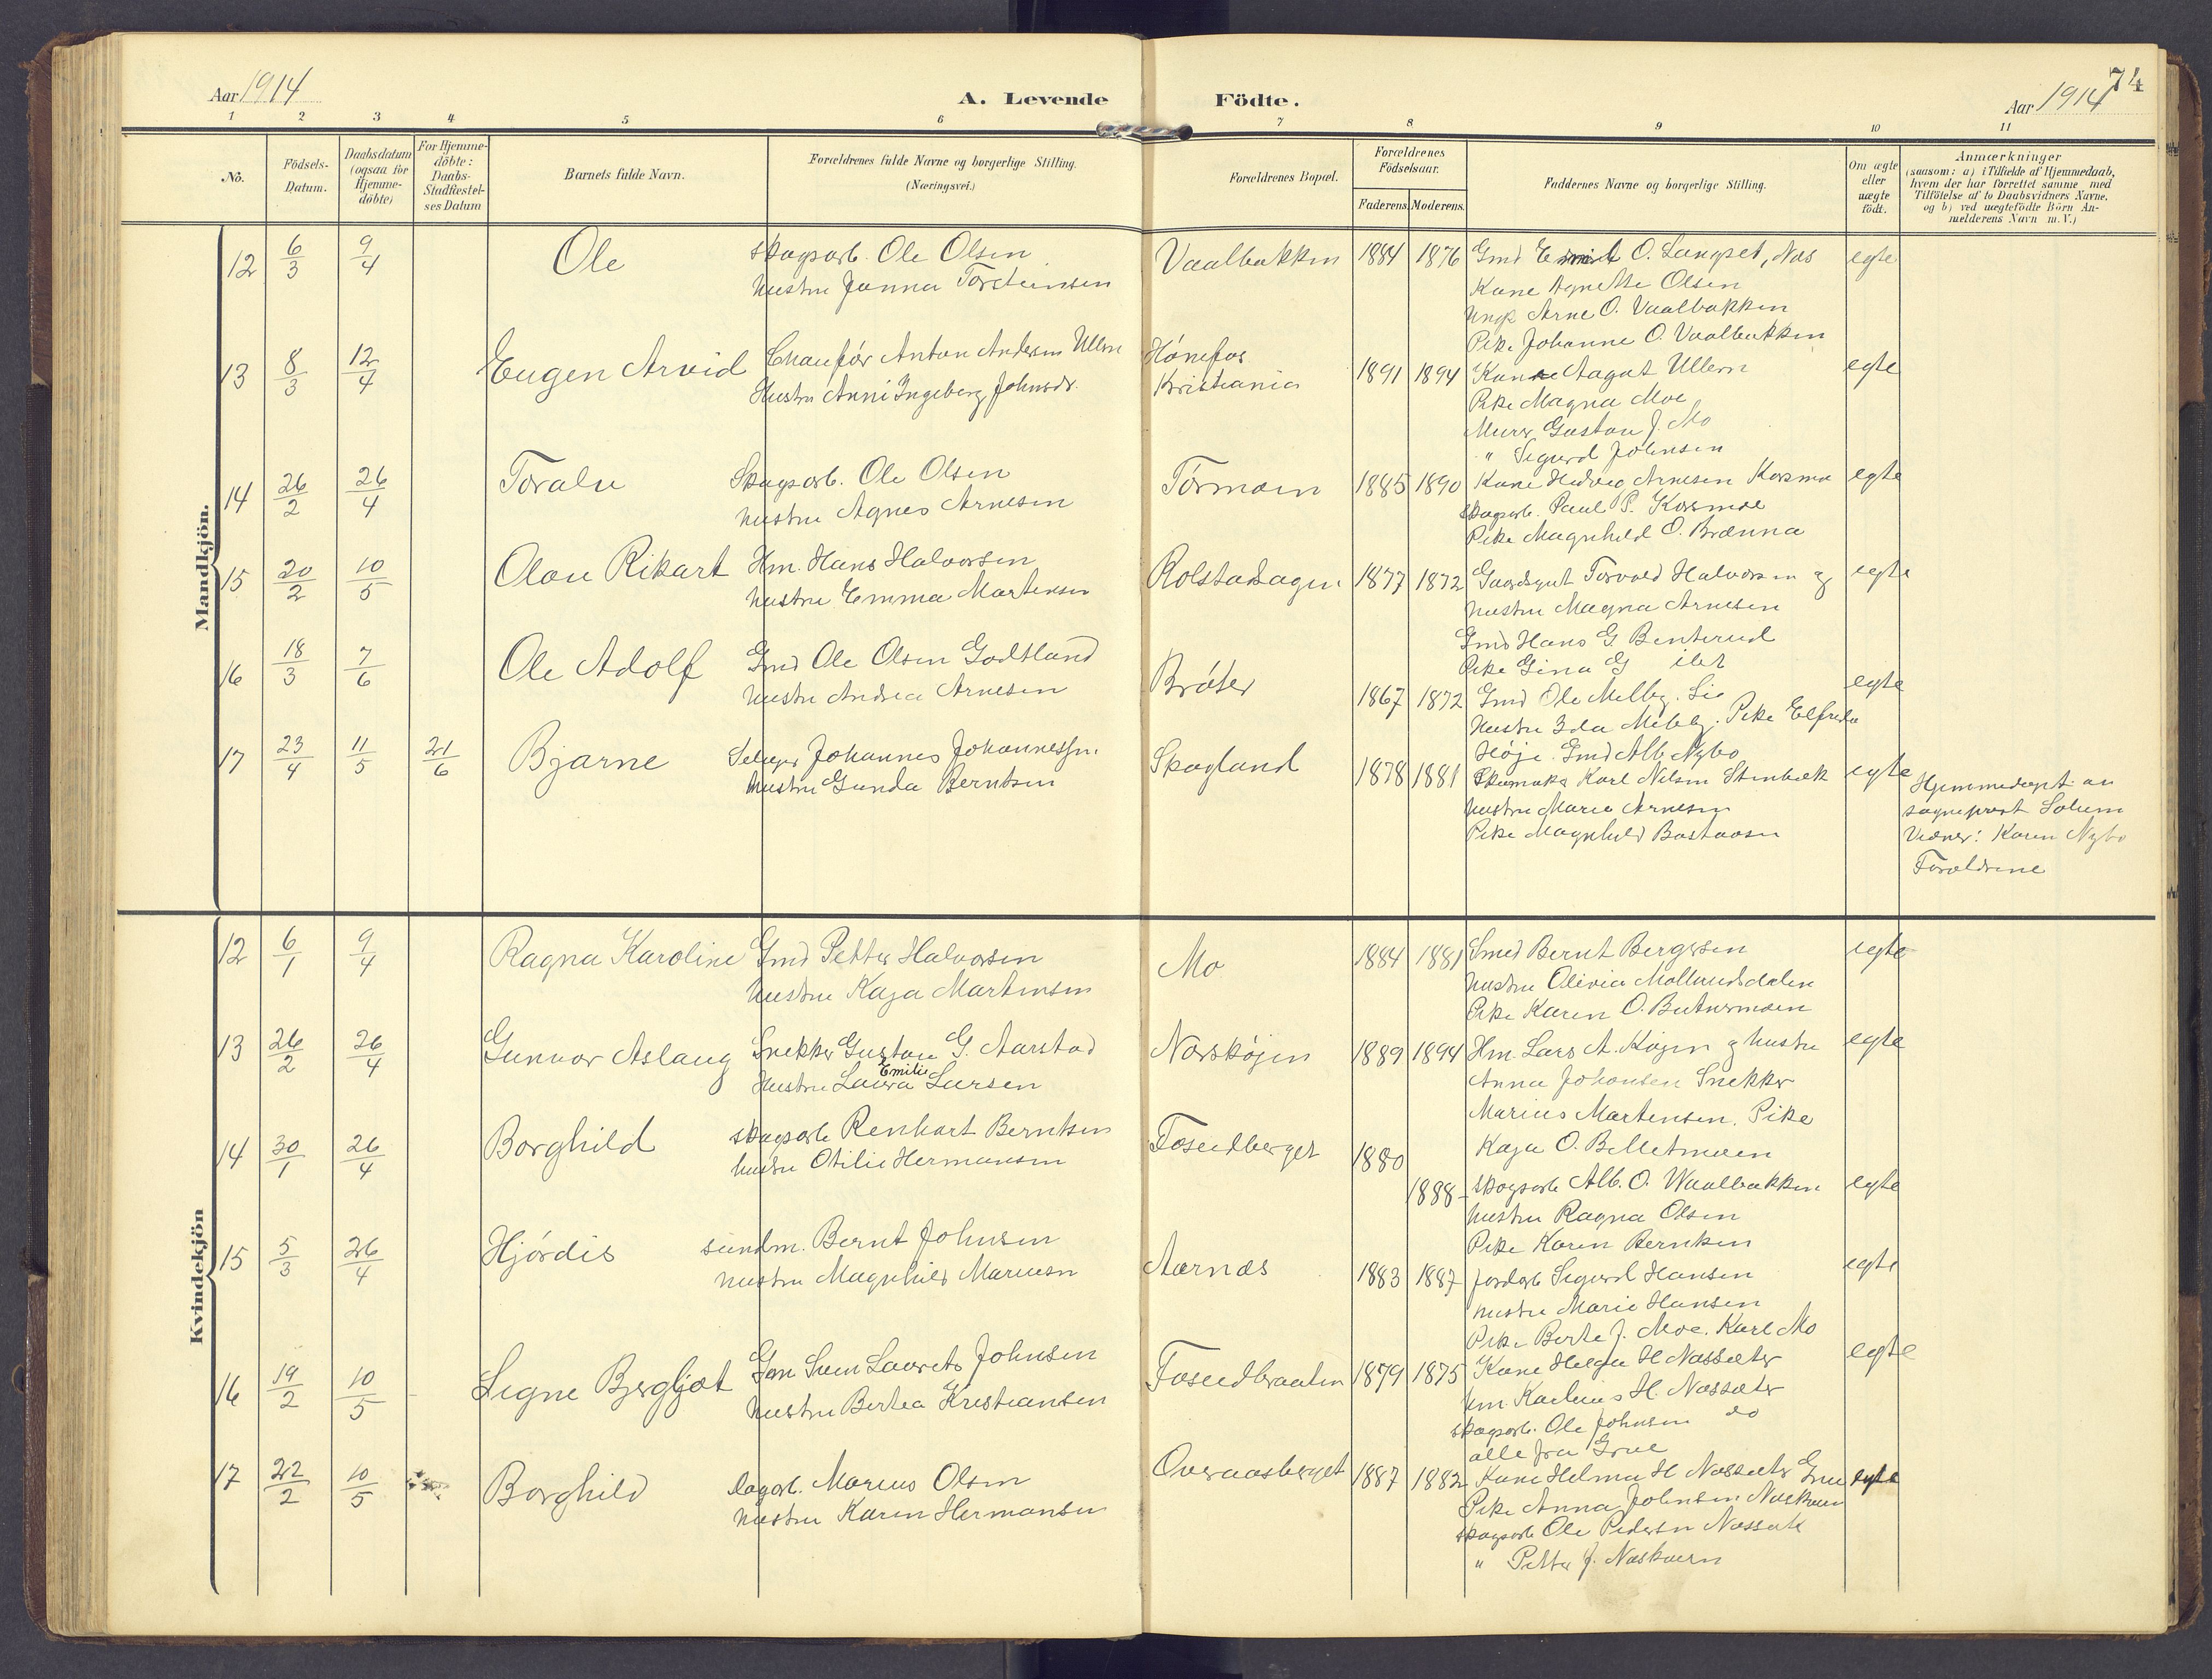 74
Aar 1914
A. Levende Födte.
Aar 1914
1 2 3 4 5 6 7 8 9 10 11
No.
Födsels-Datum.
Daabsdatum (ogsaa for Hjemme-döbte)
For Hjemme-döbte: Daabs-Stadfæstel-ses Datum
Barnets fulde Navn.
Forældrenes fulde Navne og borgerlige Stilling. (Næringsvei.)
Forældrenes Bopæl.
Forældrenes Födselsaar.
Faderens. Moderens.
Faddernes Navne og borgerlige Stilling.
Om ægte eller uægte födt.
Anmærkninger
(saasom: a) i Tilfælde af Hjemmedaab,
hvem der har forrettet samme med
Tilföielse af to Daabsvidners Navne,
og b) ved uægtefödte Börn An-
melderens Navn m. V.)
Mandkjön.
12 6/3 9/4 Ole Skogsarb. Ole Olsen Vaalbakken 1884 1876 Gmd O. Langset, Næs egte
hustru Janna Torsteinsen Kone Agnethe Olsen
Ungk Arne O. Vaalbakken
Pike Johanne O. Vaalbakken
13 8/3 12/4 Eugen Arvid Chaufór Anton Andersen Ullern Hónefos 1891 1894 Kone Aagot Ullern egte
Hustru Anni Ingeborg Johnsdr. Kristiania Pike Magna Moe
Murer Gustav J. Mo
" Sigurd Johnsen
14 26/2 26/4 Toralv Skogsarb. Ole Olsen Tórmoen 1885 1890 Kone Hedvig Arnesen Korsmo egte
hustru Agnes Arnesen skogsarb. Paul P. Korsmoe
Pike Magnhild O. Brænna
15 20/2 10/5 Olav Rikart Hm. Hans Halvorsen Rolstadhagen 1877 1872 Gaardsgut Torvald Halvorsen og egte
hustru Emma Martensen hustru Magna Arnesen
Gmd Hans G Benterud
Pike Gina G ibt
16 18/3 7/6 Ole Adolf Gmd Ole Olsen Godtland Bróter 1867 1872 Gmd Ole Melby. Lie egte
hustru Andrea Arnesen hustru Ida Melby. Pike Elfrida
Høje. Gmd Alb Nybo
17 23/4 11/5 21/6 Bjarne Selveier Johannes Johannessen. Skogland 1878 1881 Skomaker Karl Nilsen Stenbæk egte
hustru Gunda Berntsen hustru Marie Arnesen
Pike Magnhild Bastaasen
Hjemmedøpt av
sogneprest Solum
Vidner: Karen Nybo
Forældrene
Kvindekjön
12 6/1 9/4 Ragna Karoline Gmd Petter Halvorsen Mo 1884 1881 Smed Bernt Bergersen egte
hustru Kaja Martinsen hustru Olivia Mollundsdalen
Pike Karen O.
13 26/2 26/4 Gunvor Aslaug Snekker Gustav G. Aarstad Norskójen 1889 1894 Hm. Lars A. Kójen og hustru egte
Hustru Laura Emilie Larsen Anna Johansen Snekker
Marius Martensen. Pike
Kaja O.
14 30/1 26/4 Borghild skogsarb Renhart Berntsen Foseidberget 1880 1888 skogsarb Alb. O. Waalbakken egte
hustru Otilie Hermansen hustru Ragna Olsen
Pike Karen Berntsen
15 5/3 26/4 Hjórdis sundm. Bernt Johnsen Aarnæs 1883 1887 jordarb Sigurd Hansen egte
hustru Magnhild Mariusen hustru Marie Hansen
Pike Berte J. Moe. Karl Mo
16 19/2 10/5 Signe Bergljot Gm Sven Laurits Johnsen Foseidbraaten 1879 1875 Kone Helga H Næssæter egte
hustru Bertea Kristiansen Um Karlius H. Næssæter
skogsarb. Ole Johnsen do
alle fra Grue
17 22/2 10/5 Borghild dagarb. Marius Olsen Overaasberget 1887 1882 Kone Helma H Næssæter Grue egte
hustru Karen Hermansen Pike Anna Johnsen Næskvern
skogsarb Ole Pedersen Næssæt
" Petter J. Næskvern